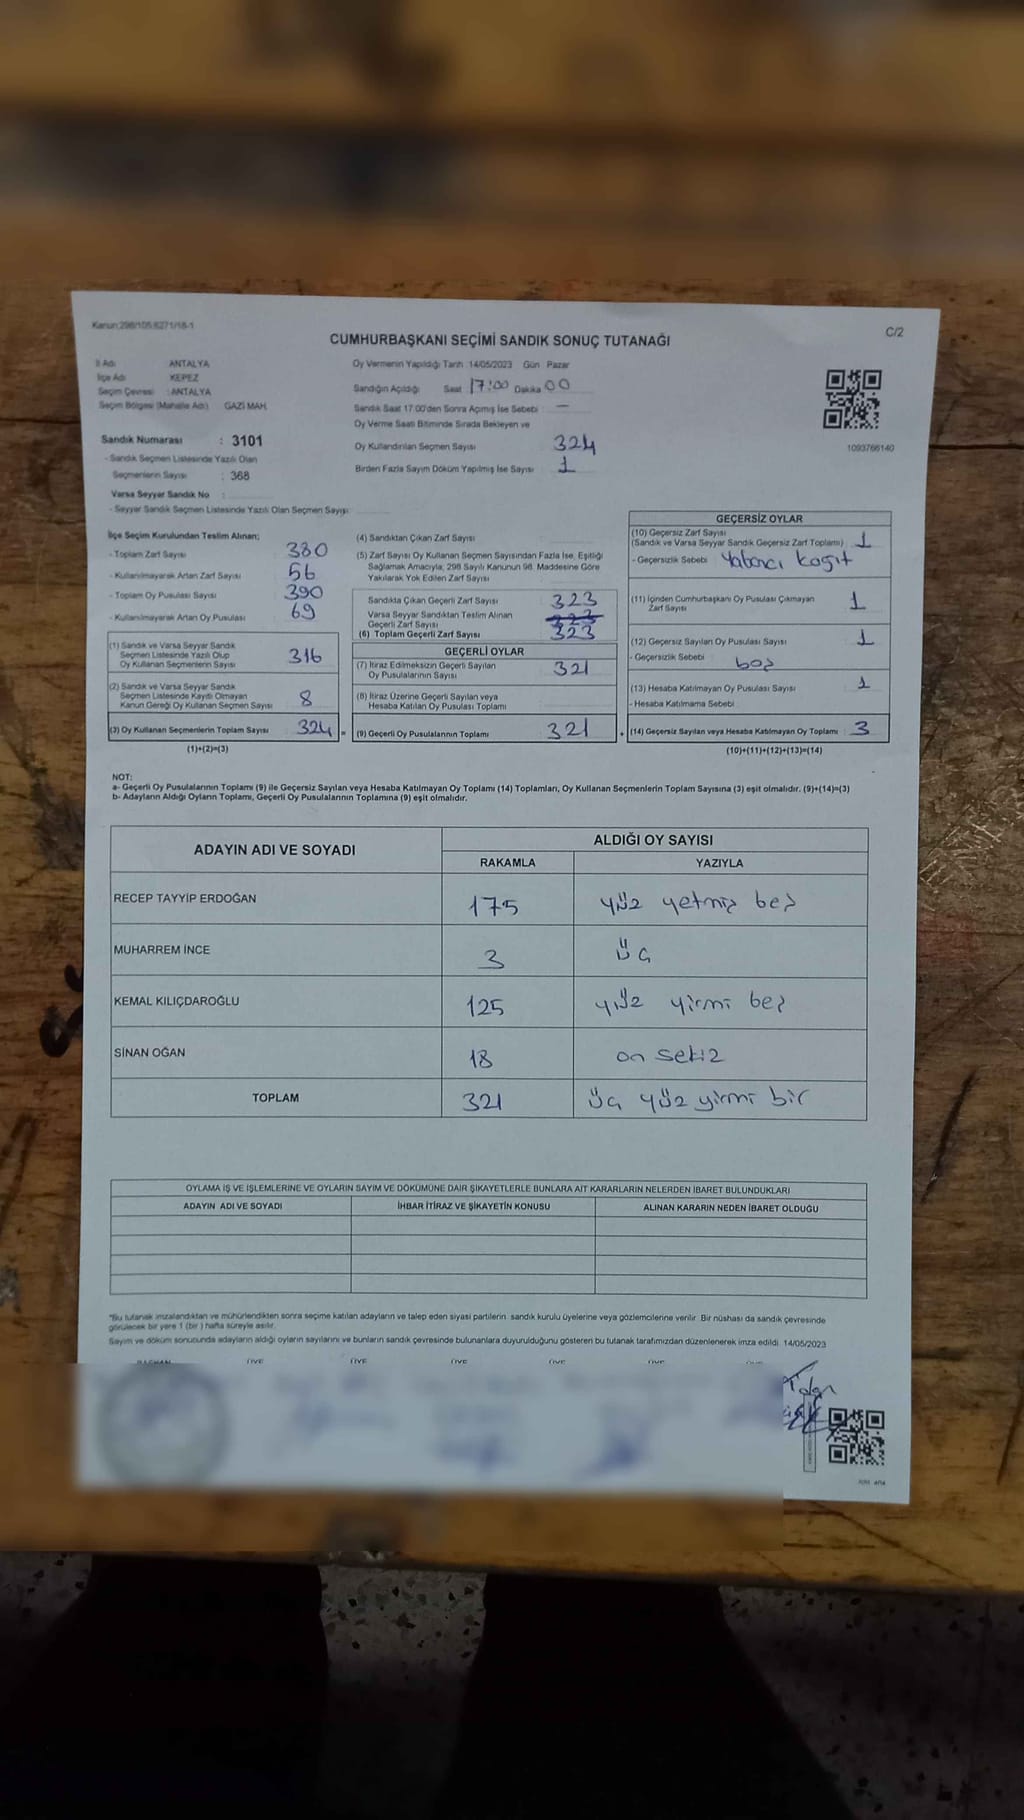 Kanun:298/105,6271/18-1
C/2
CUMHURBAŞKANI SEÇİMİ SANDIK SONUÇ TUTANAĞI
İl Adı : ANTALYA
İlçe Adı : KEPEZ
Seçim Çevresi : ANTALYA
Seçim Bölgesi (Mahalle Adı) : GAZİ MAH.
Sandık Numarası : 3101
- Sandık Seçmen Listesinde Yazılı Olan
Seçmenlerin Sayısı : 368
Varsa Seyyar Sandık No :
- Seyyar Sandık Seçmen Listesinde Yazılı Olan Seçmen Sayısı
Oy Vermenin Yapıldığı Tarih 14/05/2023 Gün Pazar
Sandığın Açıldığı Saat 17:00 Dakika 00
Sandık Saat 17.00'den Sonra Açılmış İse Sebebi : —
Oy Verme Saati Bitiminde Sırada Bekleyen ve
Oy Kullandırılan Seçmen Sayısı 324
Birden Fazla Sayım Döküm Yapılmış İse Sayısı 1
1093766140
İlçe Seçim Kurulundan Teslim Alınan;
- Toplam Zarf Sayısı 380
- Kullanılmayarak Artan Zarf Sayısı 56
- Toplam Oy Pusulası Sayısı 390
- Kullanılmayarak Artan Oy Pusulası 69
(1) Sandık ve Varsa Seyyar Sandık
Seçmen Listesinde Yazılı Olup
Oy Kullanan Seçmenlerin Sayısı 316
(2) Sandık ve Varsa Seyyar Sandık
Seçmen Listesinde Kayıtlı Olmayan
Kanun Gereği Oy Kullanan Seçmen Sayısı 8
(3) Oy Kullanan Seçmenlerin Toplam Sayısı 324 =
(1)+(2)=(3)
(4) Sandıktan Çıkan Zarf Sayısı
(5) Zarf Sayısı Oy Kullanan Seçmen Sayısından Fazla İse, Eşitliği
Sağlamak Amacıyla, 298 Sayılı Kanunun 98. Maddesine Göre
Yakılarak Yok Edilen Zarf Sayısı
Sandıkta Çıkan Geçerli Zarf Sayısı 323
Varsa Seyyar Sandıktan Teslim Alınan
Geçerli Zarf Sayısı 323
(6) Toplam Geçerli Zarf Sayısı 323
GEÇERLİ OYLAR
(7) İtiraz Edilmeksizin Geçerli Sayılan
Oy Pusulalarının Sayısı 321
(8) İtiraz Üzerine Geçerli Sayılan veya
Hesaba Katılan Oy Pusulası Toplamı
(9) Geçerli Oy Pusulalarının Toplamı 321 +
GEÇERSİZ OYLAR
(10) Geçersiz Zarf Sayısı
(Sandık ve Varsa Seyyar Sandık Geçersiz Zarf Toplamı) 1
- Geçersizlik Sebebi Yabancı kağıt
(11) İçinden Cumhurbaşkanı Oy Pusulası Çıkmayan
Zarf Sayısı 1
(12) Geçersiz Sayılan Oy Pusulası Sayısı 1
- Geçersizlik Sebebi boş
(13) Hesaba Katılmayan Oy Pusulası Sayısı 1
- Hesaba Katılmama Sebebi
(14) Geçersiz Sayılan veya Hesaba Katılmayan Oy Toplamı : 3
(10)+(11)+(12)+(13)=(14)
NOT:
a- Geçerli Oy Pusulalarının Toplamı (9) ile Geçersiz Sayılan veya Hesaba Katılmayan Oy Toplamı (14) Toplamları, Oy Kullanan Seçmenlerin Toplam Sayısına (3) eşit olmalıdır. (9)+(14)=(3)
b- Adayların Aldığı Oyların Toplamı, Geçerli Oy Pusulalarının Toplamına (9) eşit olmalıdır.
ADAYIN ADI VE SOYADI
ALDIĞI OY SAYISI
RAKAMLA YAZIYLA
RECEP TAYYİP ERDOĞAN 175 yüz yetmiş beş
MUHARREM İNCE 3 üç
KEMAL KILIÇDAROĞLU 125 yüz yirmi beş
SİNAN OĞAN 18 on sekiz
TOPLAM 321 üç yüz yirmi bir
OYLAMA İŞ VE İŞLEMLERİNE VE OYLARIN SAYIM VE DÖKÜMÜNE DAİR ŞİKAYETLERLE BUNLARA AİT KARARLARIN NELERDEN İBARET BULUNDUKLARI
ADAYIN ADI VE SOYADI İHBAR İTİRAZ VE ŞİKAYETİN KONUSU ALINAN KARARIN NEDEN İBARET OLDUĞU
*Bu tutanak imzalandıktan ve mühürlendikten sonra seçime katılan adayların ve talep eden siyasi partilerin sandık kurulu üyelerine veya gözlemcilerine verilir. Bir nüshası da sandık çevresinde
görülecek bir yere 1 (bir ) hafta süreyle asılır.
Sayım ve döküm sonucunda adayların aldığı oyların sayılarını ve bunların sandık çevresinde bulunanlara duyurulduğunu gösteren bu tutanak tarafımızdan düzenlenerek imza edildi. 14/05/2023
BAŞKAN ÜYE ÜYE ÜYE ÜYE ÜYE ÜYE